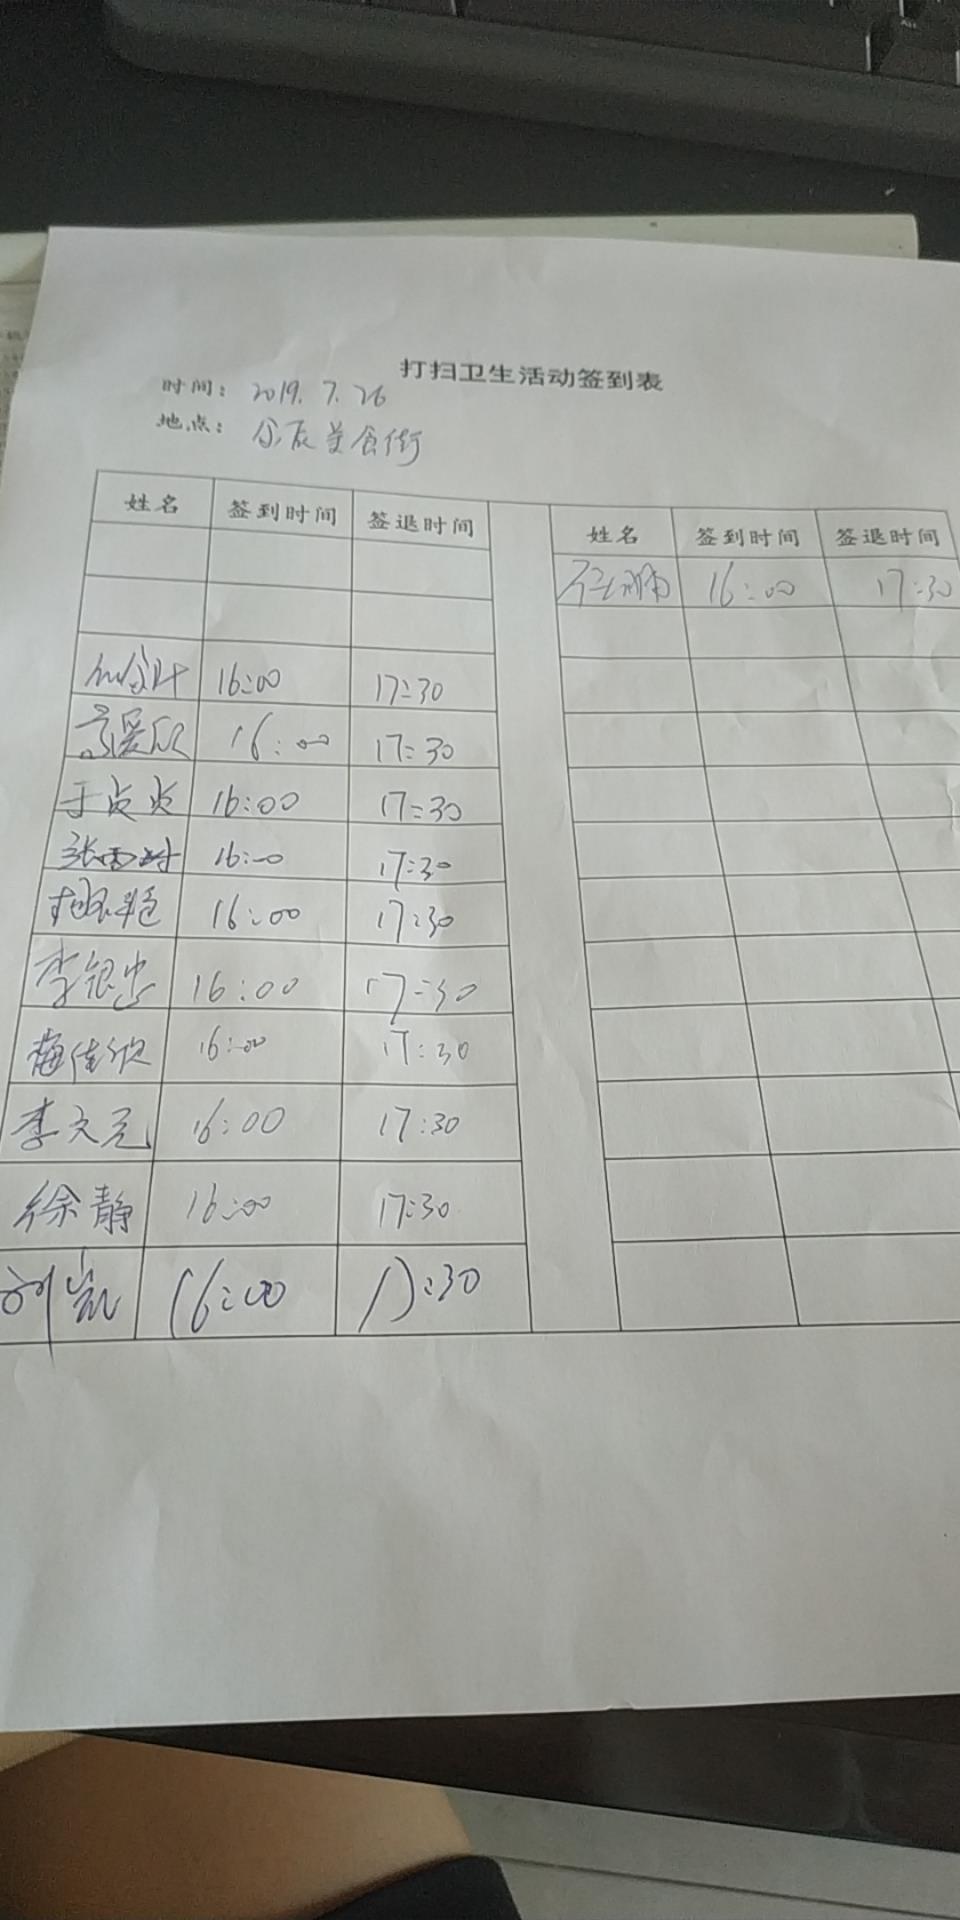 打扫卫生活动签到表
时间： 2019.7.26
地点： 美食街
姓名 签到时间 签退时间 姓名 签到时间 签退时间
16:00 17:30
16:00 17:30
16:00 17:30
于贞贞 16:00 17:30
张雨时 16:00 17:30
16:00 17:30
李银忠 16:00 17:30
梅佳欣 16:00 17:30
李文元 16:00 17:30
徐静 16:00 17:30
刘凯 16:00 17:30